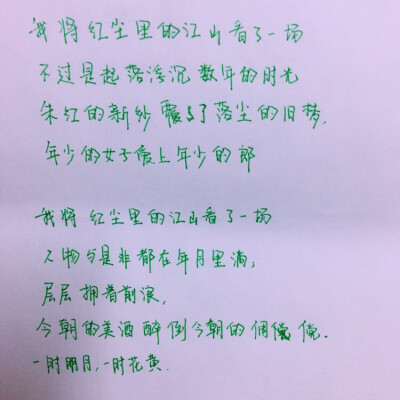 我将红尘里的江山看了一场
不过是起落浮沉数年的时光
朱红的新纱覆了落尘的旧梦,
年少的女子爱上年少的郎
我将红尘里的江山看了一场
人物与是非都在年月里淌,
层层拥着前浪,
今朝的美酒醉倒今朝的倜傥.
一时明月,一时花黄.